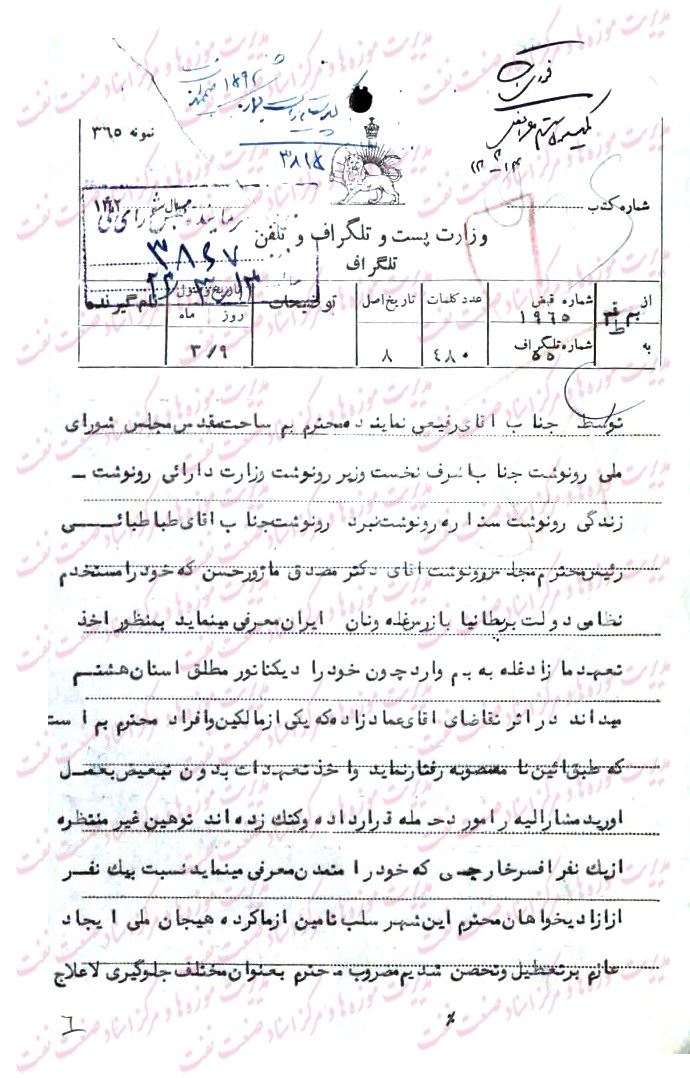 فوری است
کمیسیون عرایض
۱۴-۳-۲۳
۳۸۱۵
نمونه ۳۶۵
شماره کتاب
نماینده مجلس شورای ملی
۳۸۶۷
وزارت پست و تلگراف و تلفن
تلگراف
از بم به ط شماره قبض ۱۹۶۵ عدد کلمات تاریخ اصل توضیحات تاریخ وصول نام گیرنده
شماره تلگراف ۵۵ ۴۸۰ ۸ روز ماه ۳/۹
توسط جناب اقای رفیعی نماینده محترم بم ساحت مقدس مجلس شورای
ملی رونوشت جناب اشرف نخست وزیر رونوشت وزارت دارائی رونوشت ـ
زندگی رونوشت ستاره رونوشت نبرد رونوشت جناب اقای طباطبائی
رئیس محترم مجلس رونوشت اقای دکتر مصدق ماژور حسن که خود را مستخدم
نظامی دولت بریطانیا بازرس غله ونان ایران معرفی مینماید بمنظور اخذ
تعهد مازاد غله به بم وارد چون خود را دیکتاتور مطلق استان هشتم
میداند در اثر تقاضای اقای عماد زاده که یکی از مالکین وافراد محترم بم است
که طبق ائین نامه مصوبه رفتار نماید واخذ تعهدات بدون تبعیض بعمل
اورید مشارالیه را مورد حمله قرار داده وکتک زده اند توهین غیر منتظره
از یک نفر افسر خارجی که خود را متمدن معرفی مینماید نسبت بیک نفر
از ازادیخواهان محترم این شهر سلب تامین از ما کرده هیجان ملی ایجاد
عازم بر تعطیل وتحصن شدیم مضروب محترم بعنوان مختلف جلوگیری لاعلاج
٪
مدیریت موزه‌ها و مرکز اسناد صنعت نفت